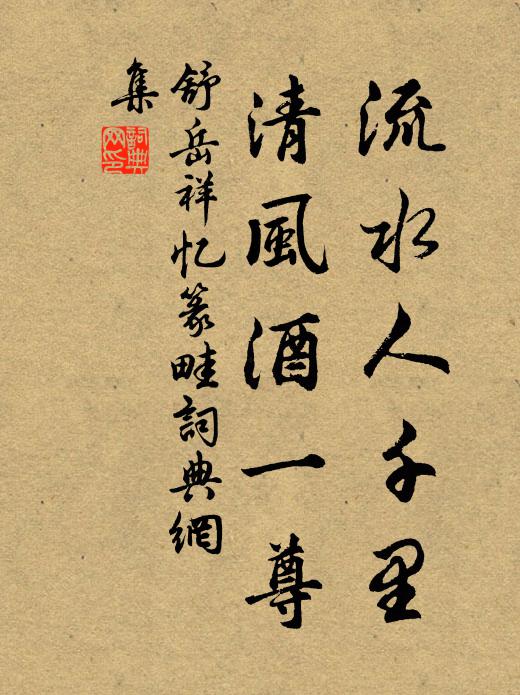 流水人千里
清風酒一尊
舒岳祥忆篆畦詞典網
集
詞典网印